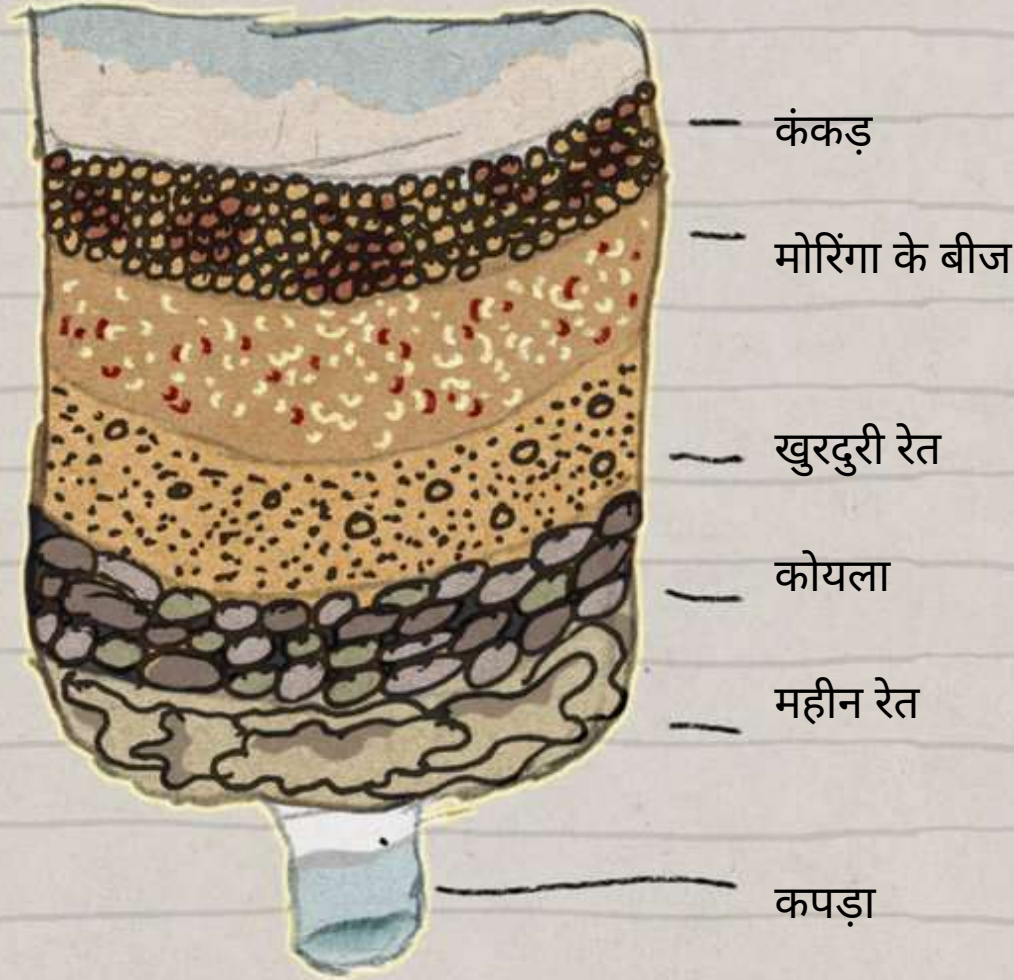 कंकड़
मोरिंगा के बीज
खुरदुरी रेत
कोयला
महीन रेत
कपड़ा